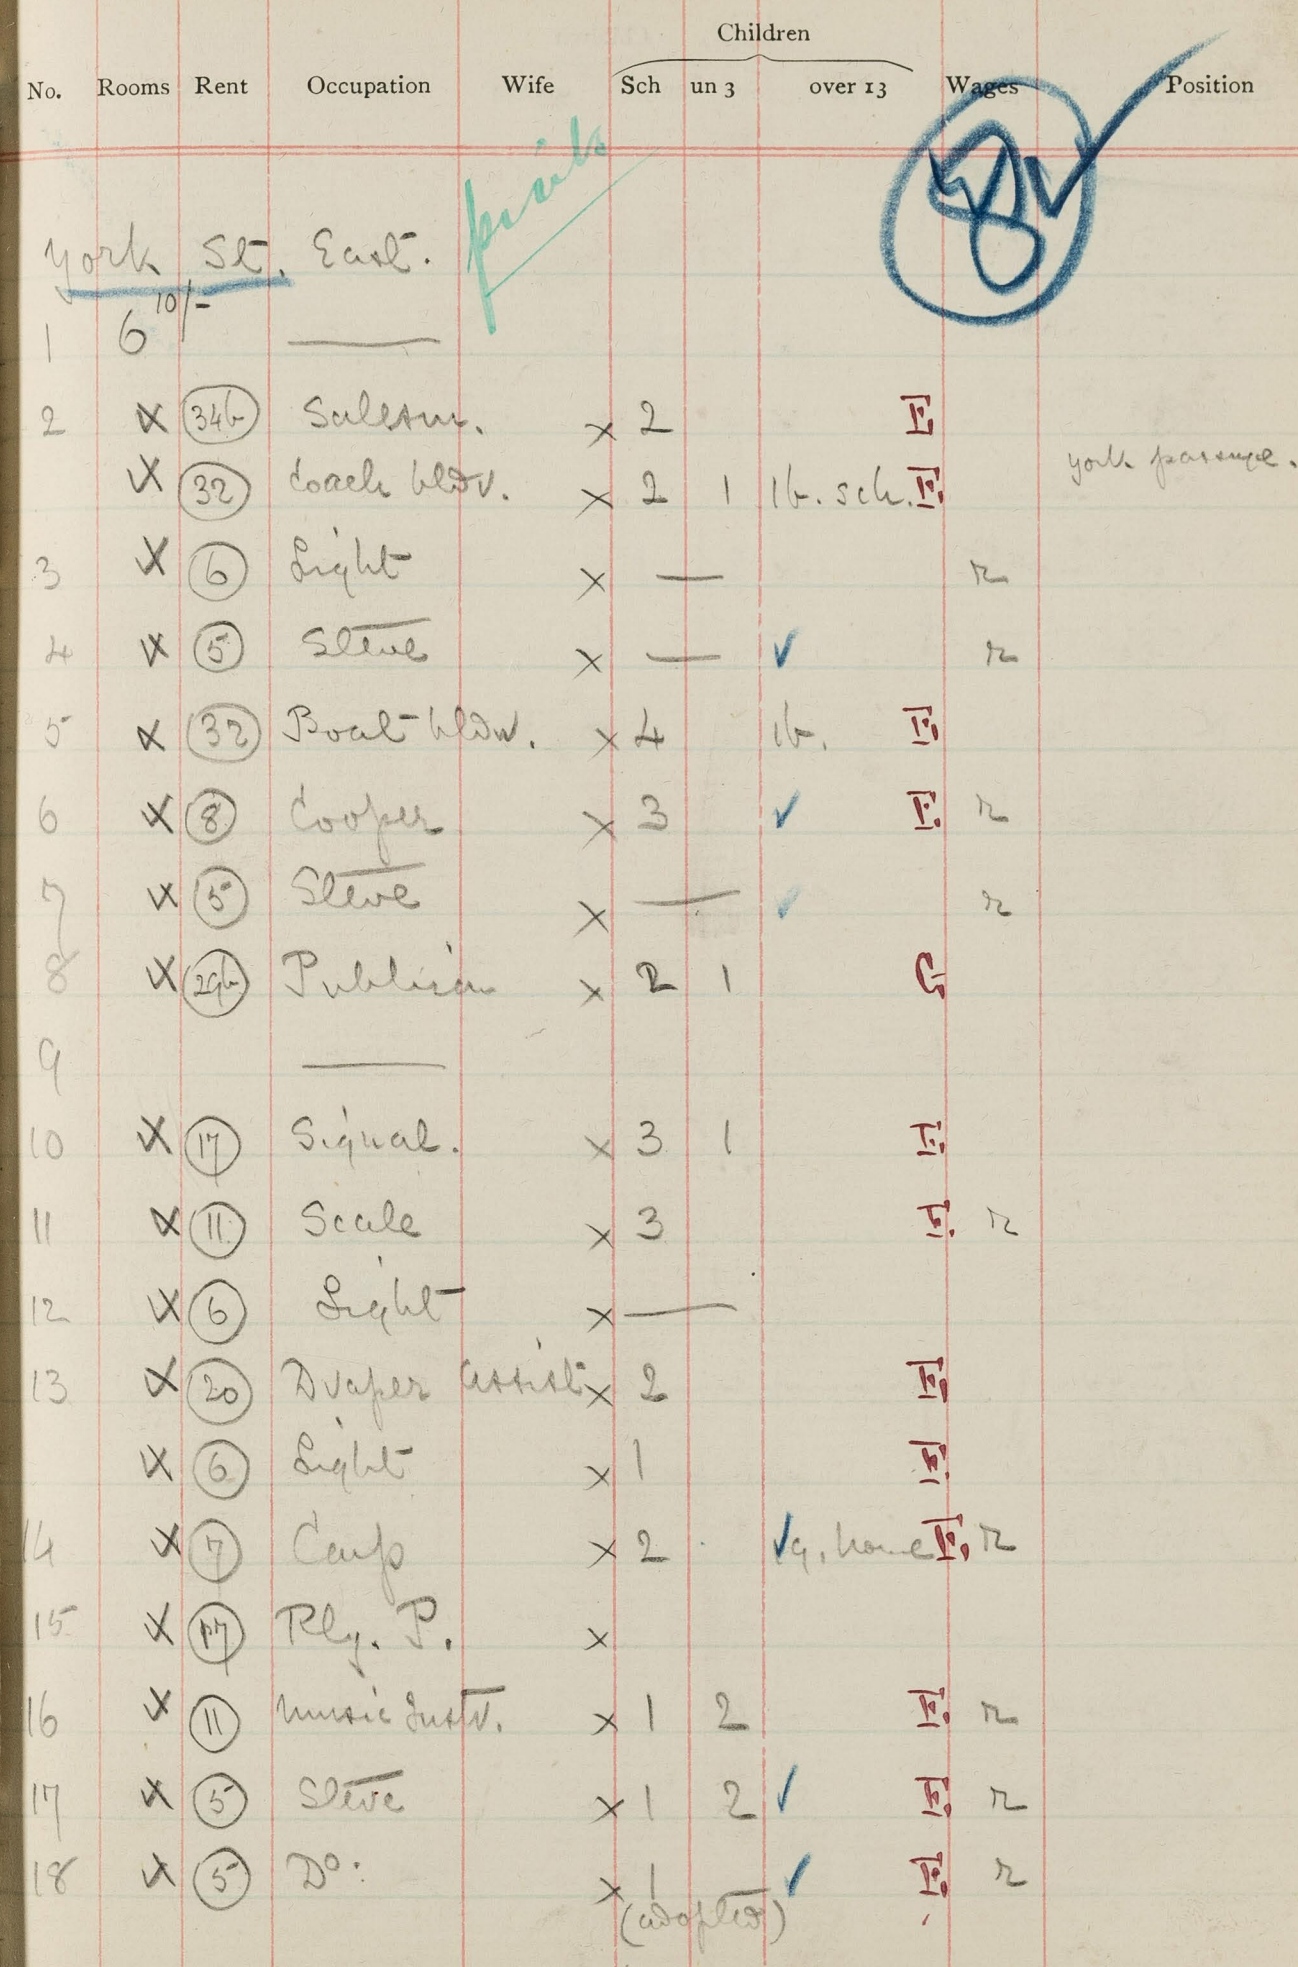 Children
No. Rooms Rent Occupation Wife Sch un 3 over 13 Wages Position
York St. East. pink 8
1 6 10/- —
2 x 34b Salesm. x 2 E
York passage.
x 32 Coach bldr. x 2 1 1b. sch. E.
3 x 6 Light x — r
4 x 5 Steve x — ✓ r
5 x 32 Boat bldr. x 4 1b. E.
6 x 8 Cooper x 3 ✓ E. r
7 x 5 Steve x — ✓ r
8 x 29b Publican x 2 1 G.
9 —
10 x 17 Signal. x 3 1 E.
11 x 11 Scale x 3 E. r
12 x 6 Light x —
13 x 20 Draper Assist x 2 E.
x 6 Light x 1 E.
14 x 7 Carp x 2 ✓ g. home E. r
15 x 17 Rly. P. x
16 x 11 Music Instr. x 1 2 E. r
17 x 5 Steve x 1 2 ✓ E. r
18 x 5 Do. x 1 ✓ E. r
(adopted)